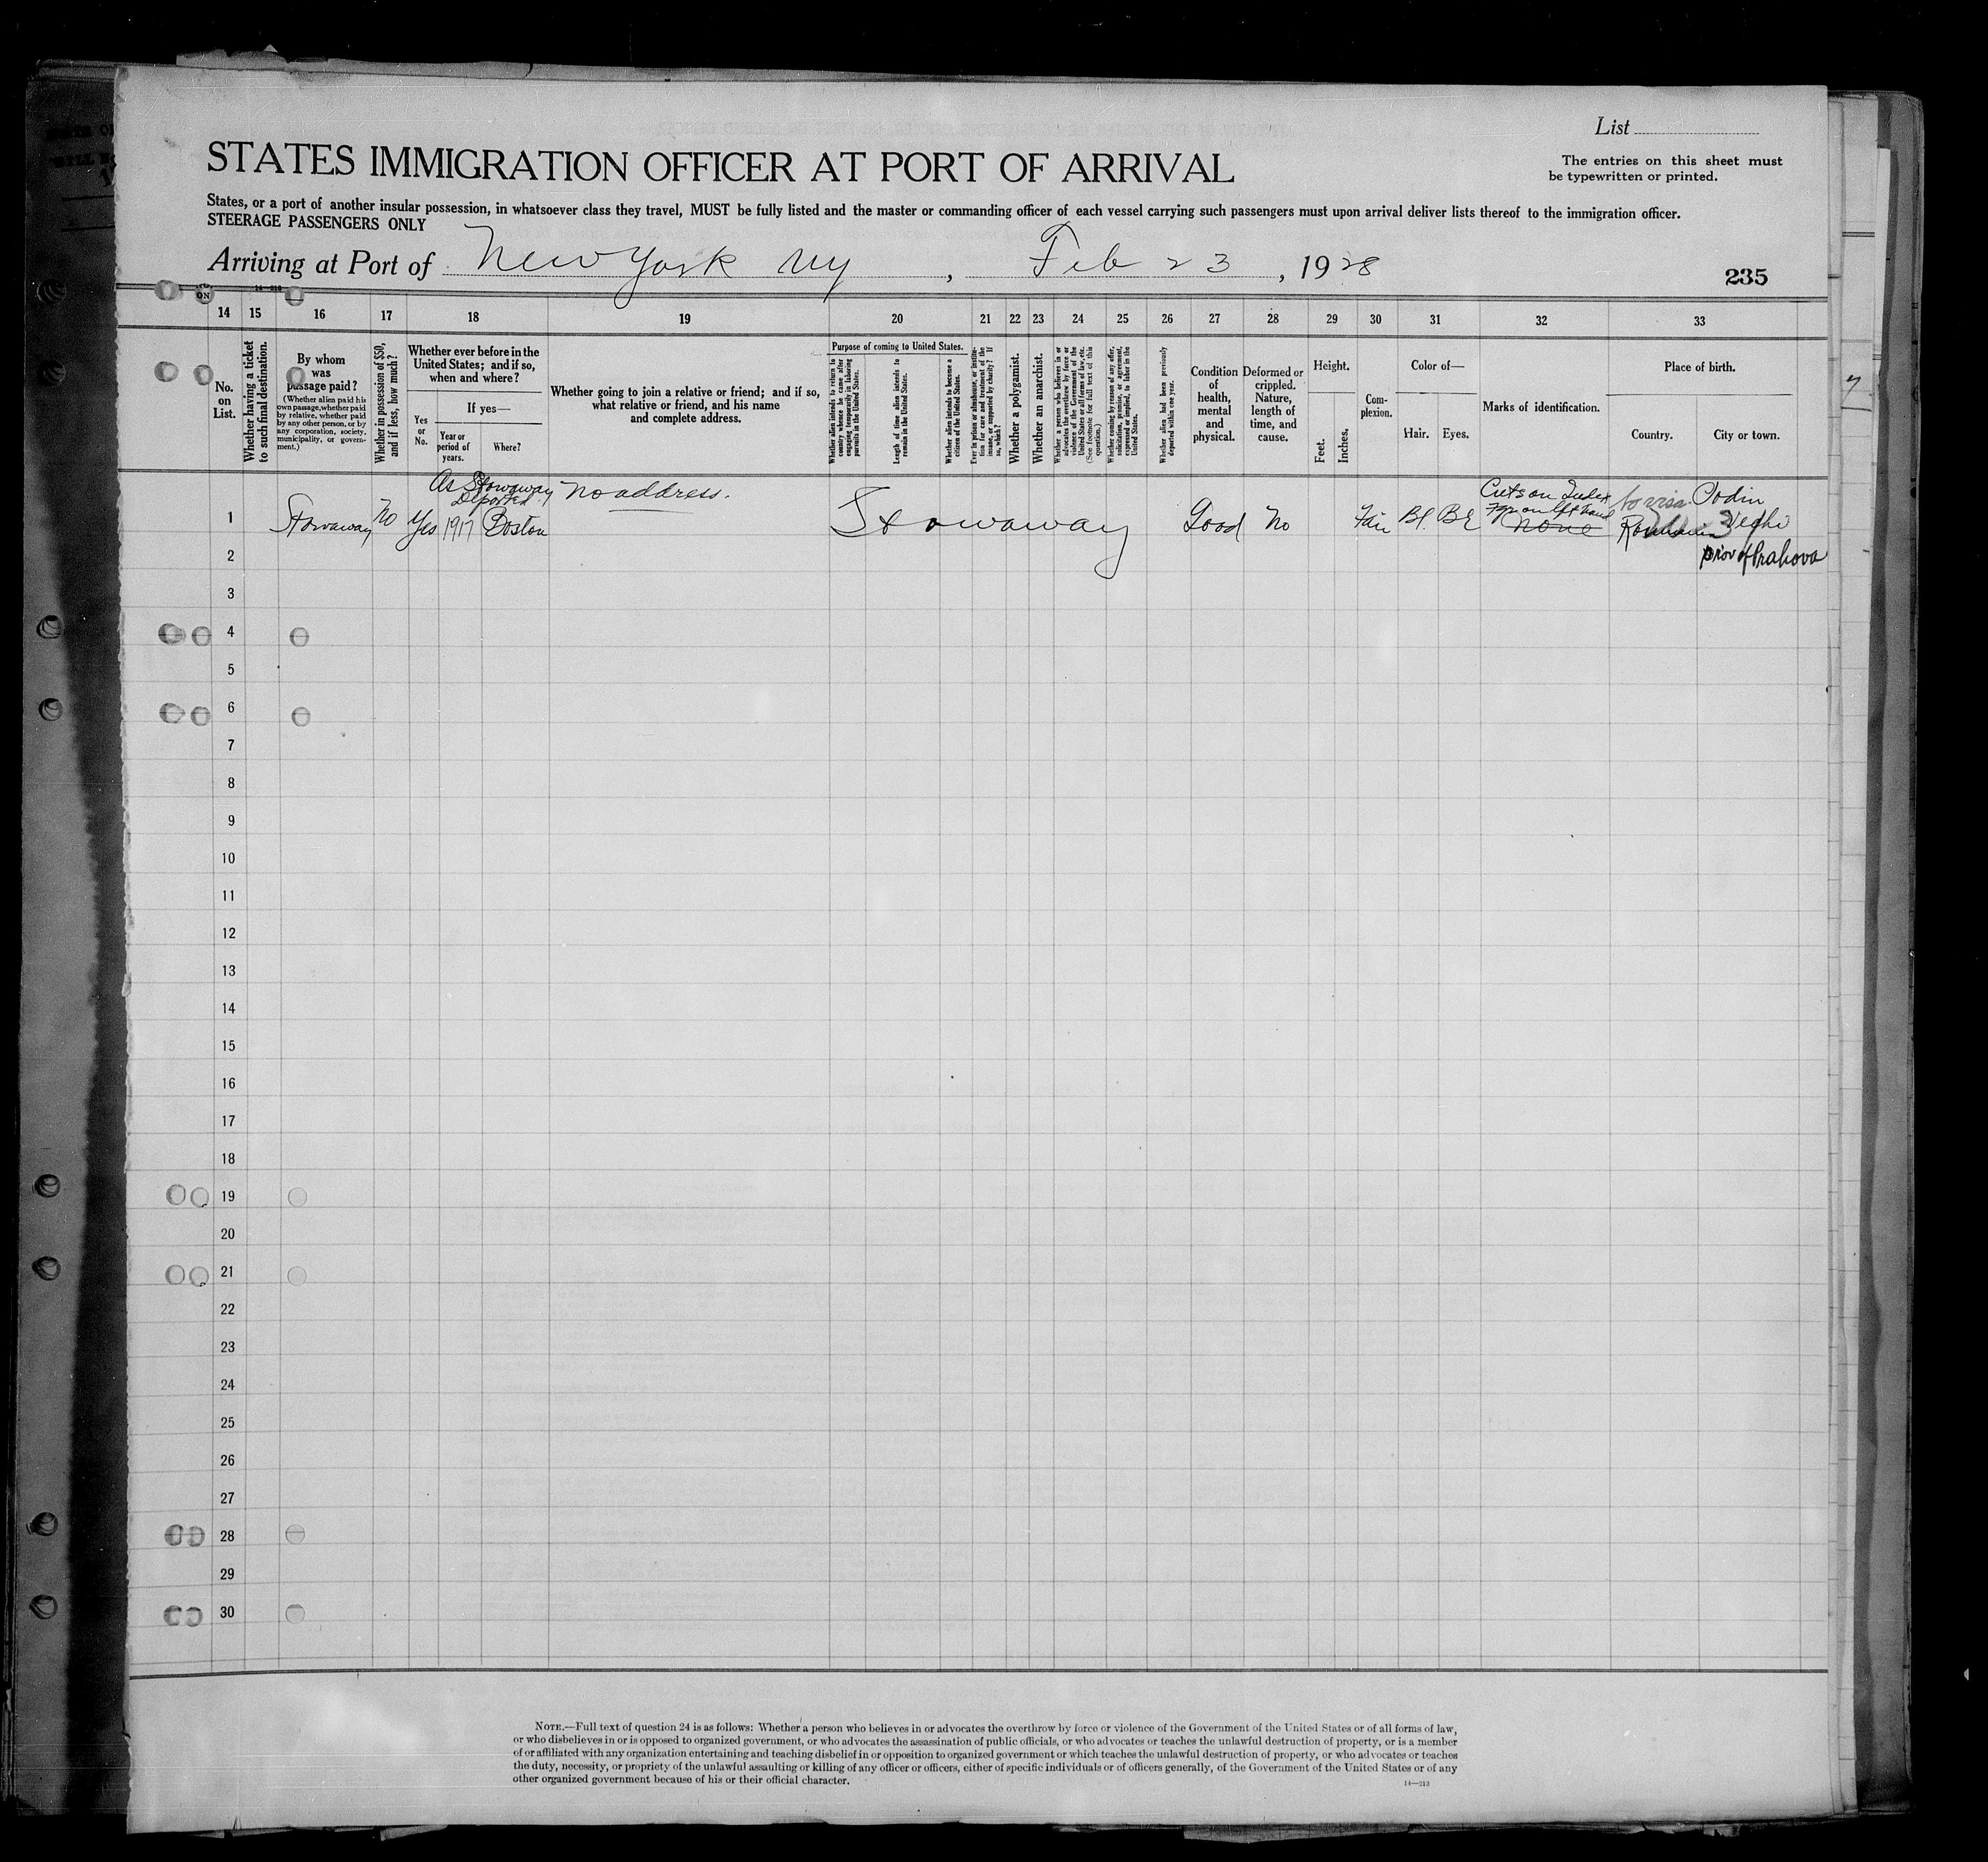 List
The entries on this sheet must
be typewritten or printed.
STATES IMMIGRATION OFFICER AT PORT OF ARRIVAL
States, or a port of another insular possession, in whatsoever class they travel, MUST be fully listed and the master or commanding officer of each vessel carrying such passengers must upon arrival deliver lists thereof to the immigration officer.
STEERAGE PASSENGERS ONLY
Arriving at Port of New York NY, Feb 23, 1928
235
14 15 16 17 18 19 20 21 22 23 24 25 26 27 28 29 30 31 32 33
No.
on
List.
Whether having a ticket
to such final destination.
By whom
was
passage paid?
(Whether alien paid his
own passage, whether paid
by relative, whether paid
by any other person, or by
any corporation, society,
municipality, or govern-
ment.)
Whether in possession of $50,
and if less, how much?
Whether ever before in the
United States; and if so,
when and where?
Yes
or
No.
If yes—
Year or
period of
years.
Where?
Whether going to join a relative or friend; and if so,
what relative or friend, and his name
and complete address.
Purpose of coming to United States.
Whether alien intends to return to
country whence he came after
engaging temporarily in laboring
pursuits in the United States.
Length of time alien intends to
remain in the United States.
Whether alien intends to become a
citizen of the United States.
Ever in prison or almshouse, or institu-
tion for care and treatment of the
insane, or supported by charity? If
so, which?
Whether a polygamist.
Whether an anarchist.
Whether a person who believes in or
advocates the overthrow by force or
violence of the Government of the
United States or all forms of law, etc.
(See footnote for full text of this
question.)
Whether coming by reason of any offer,
solicitation, promise, or agreement,
expressed or implied, to labor in the
United States.
Whether alien had been previously
deported within one year.
Condition
of
health,
mental
and
physical.
Deformed or
crippled.
Nature,
length of
time, and
cause.
Height.
Feet.
Inches.
Com-
plexion.
Color of—
Hair.
Eyes.
Marks of identification.
Place of birth.
Country.
City or town.
As Stowaway
Deported
no address.
Cuts on Index
no visa
1 Stowaway No Yes 1917 Boston Stowaway Good No Fair Bl. none
prov of Prahova
2
3
4
5
6
7
8
9
10
11
12
13
14
15
16
17
18
19
20
21
22
23
24
25
26
27
28
29
30
NOTE.—Full text of question 24 is as follows: Whether a person who believes in or advocates the overthrow by force or violence of the Government of the United States or of all forms of law,
or who disbelieves in or is opposed to organized government, or who advocates the assassination of public officials, or who advocates or teaches the unlawful destruction of property, or is a member
of or affiliated with any organization entertaining and teaching disbelief in or opposition to organized government or which teaches the unlawful destruction of property, or who advocates or teaches
the duty, necessity, or propriety of the unlawful assaulting or killing of any officer or officers, either of specific individuals or of officers generally, of the Government of the United States or of any
other organized government because of his or their official character.
14—213